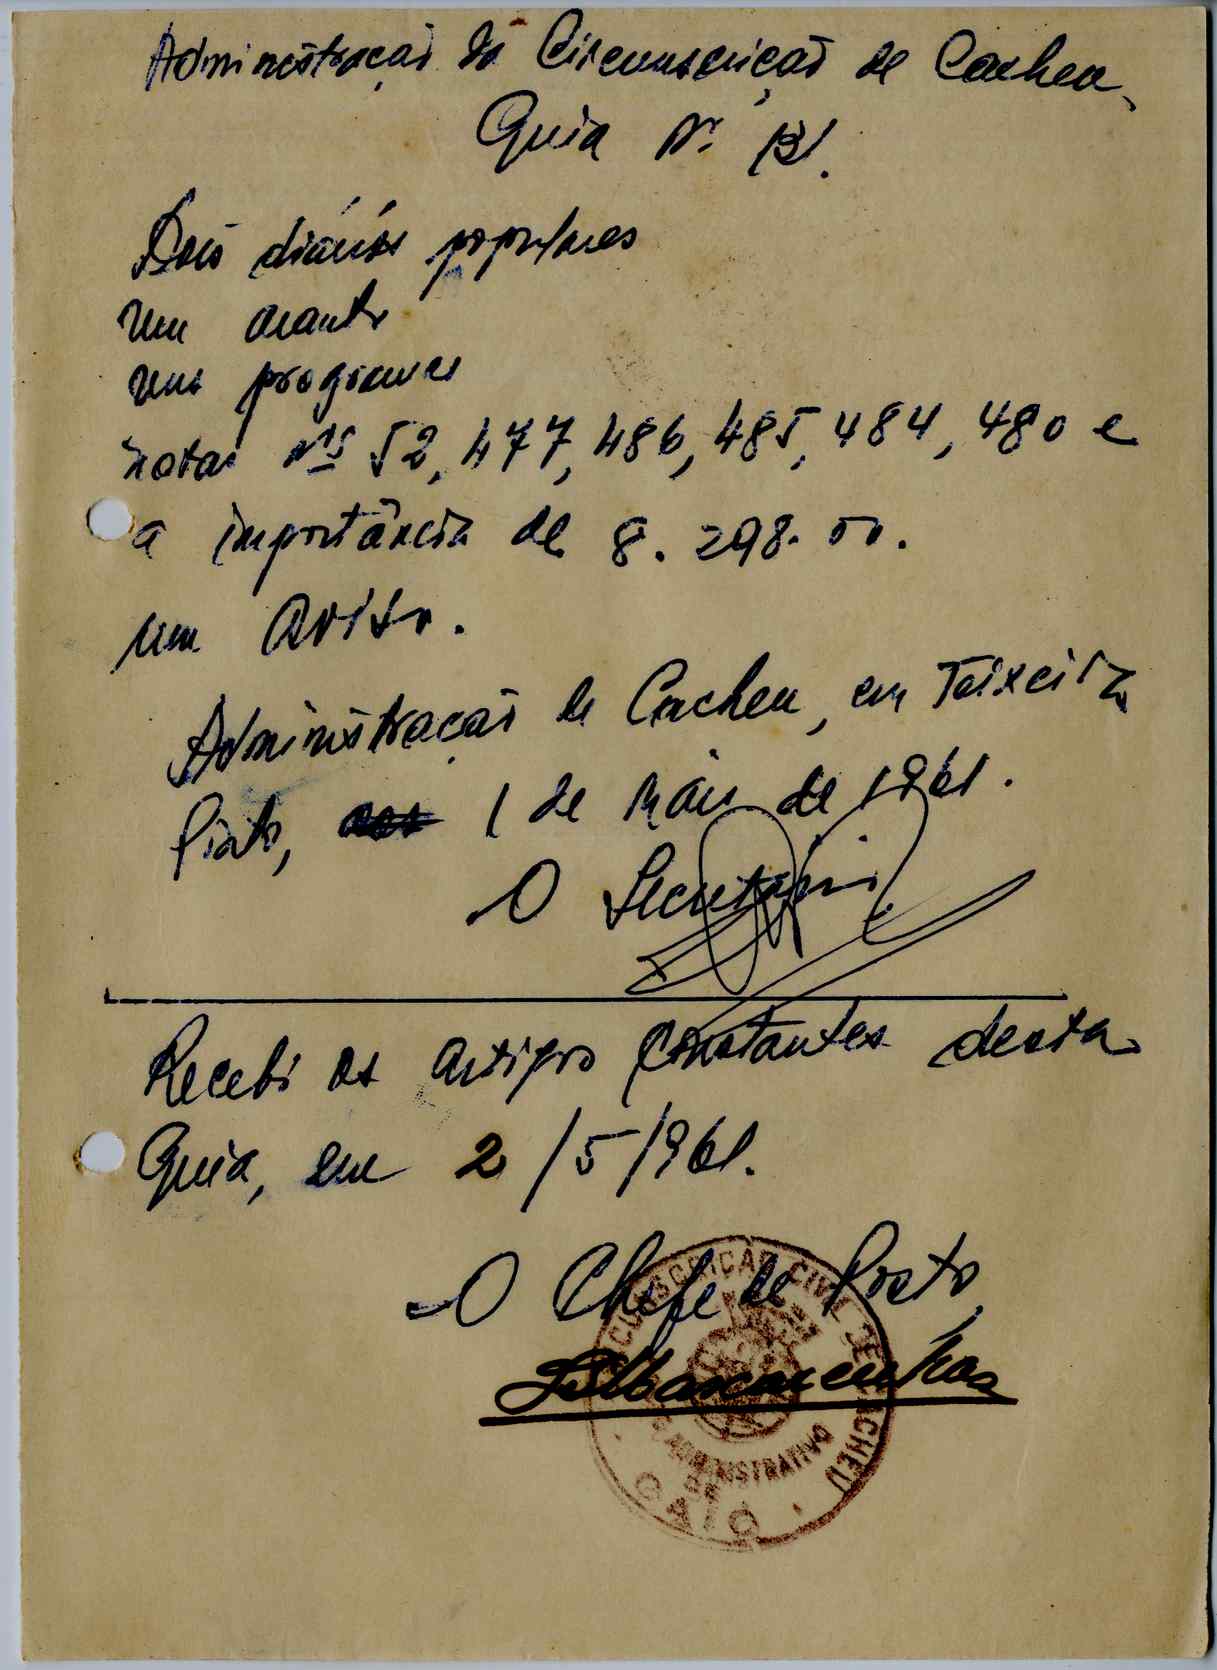 Administração da Circunscrição de Cacheu,
Guia Nº 131.
Dois diários populares
um
um programa
notas Nºs 52, 477, 486, 485, 484, 480 e
a importância de 8.298.00.
um aviso.
Administração de Cacheu, em Teixeira
Pinto, 1 de Maio de 1961.
O Secretário
Recebi os artigos constantes desta
Guia, em 2/5/1961.
O Chefe de Posto,
CIRCUNSCRIÇÃO CIVIL DE CACHEU
ADMINISTRATIVO
DE
CAIÓ